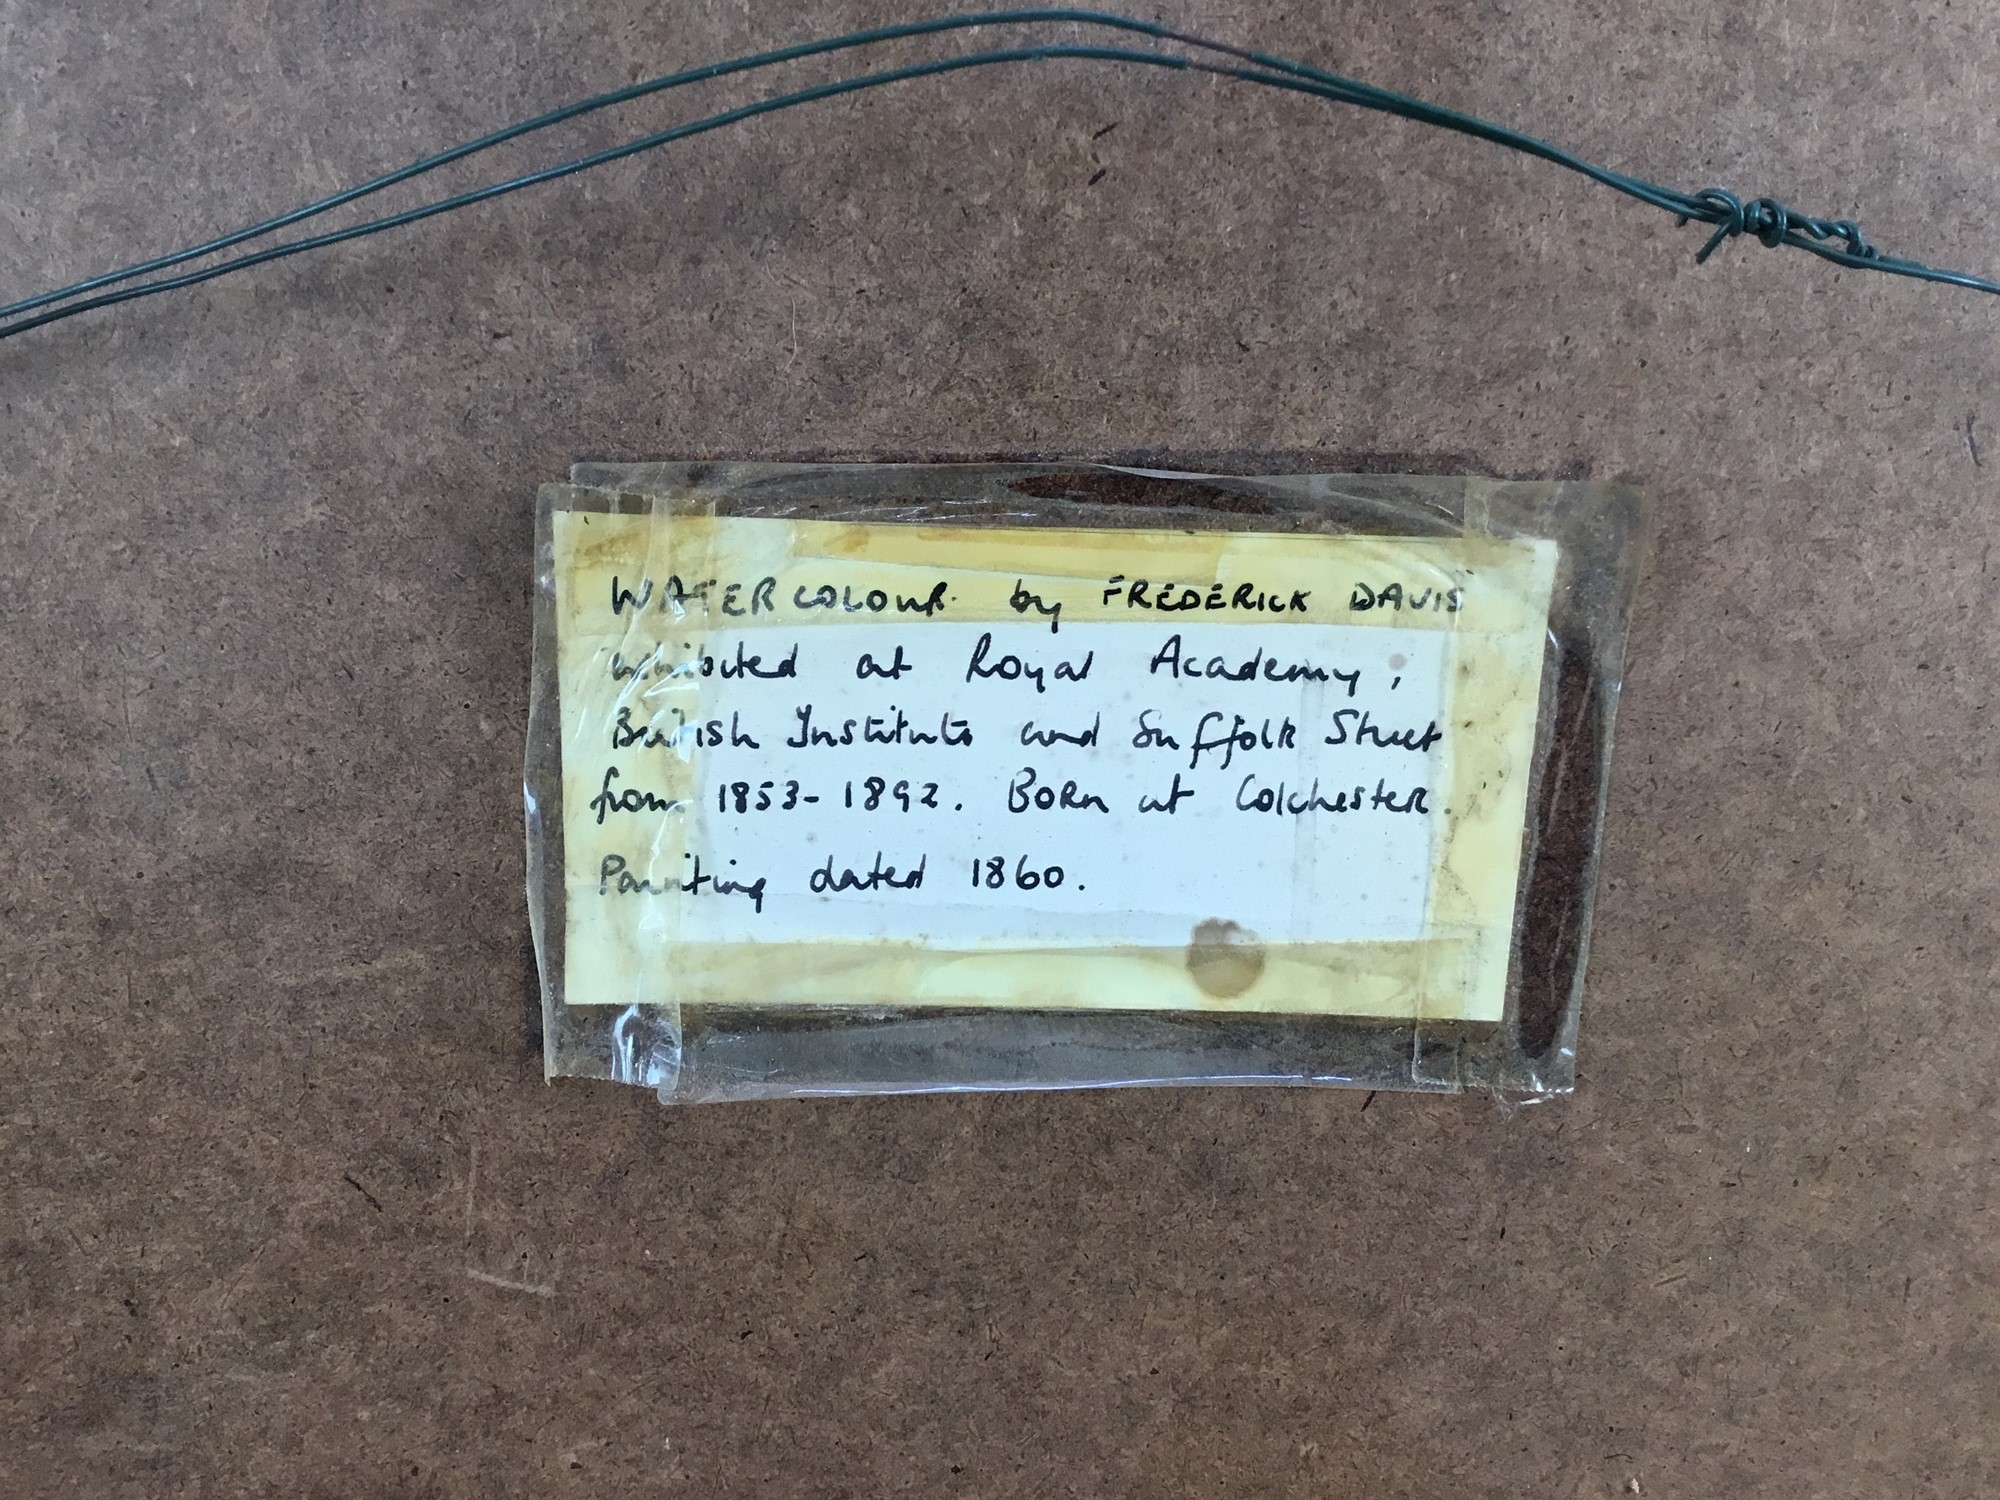 WATERCOLOUR by FREDERICK DAVIS
exhibited at Royal Academy,
British Institute and Suffolk Street
from 1853-1892. BORn at Colchester.
Painting dated 1860.